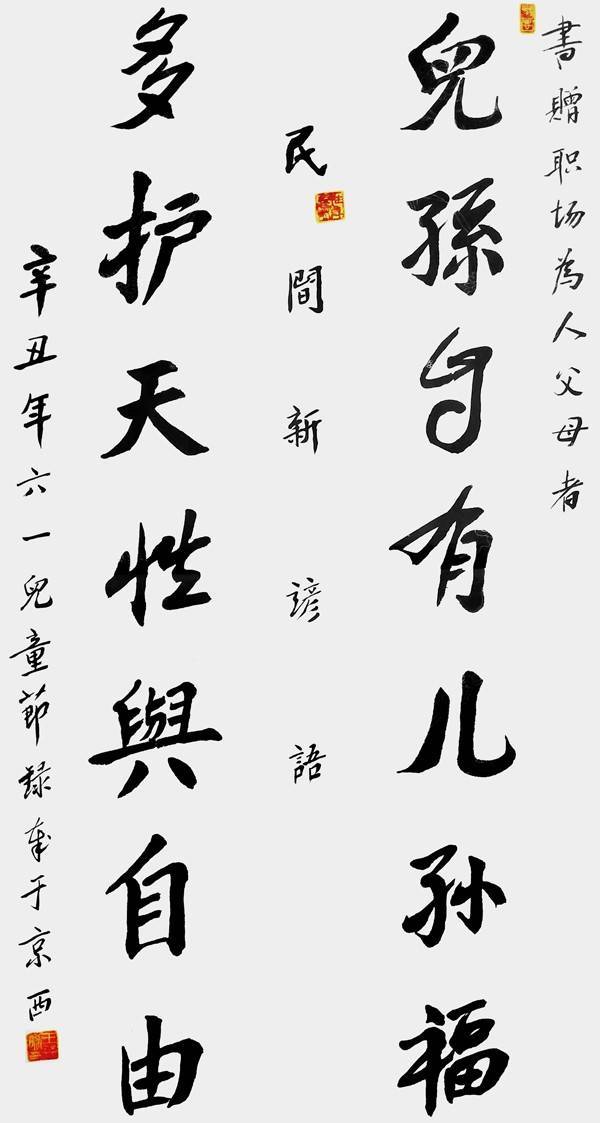 書贈职场為人父母者
兒孫自有儿孙福
民間新諺語
多护天性與自由
辛丑年六一兒童節録奉于京西